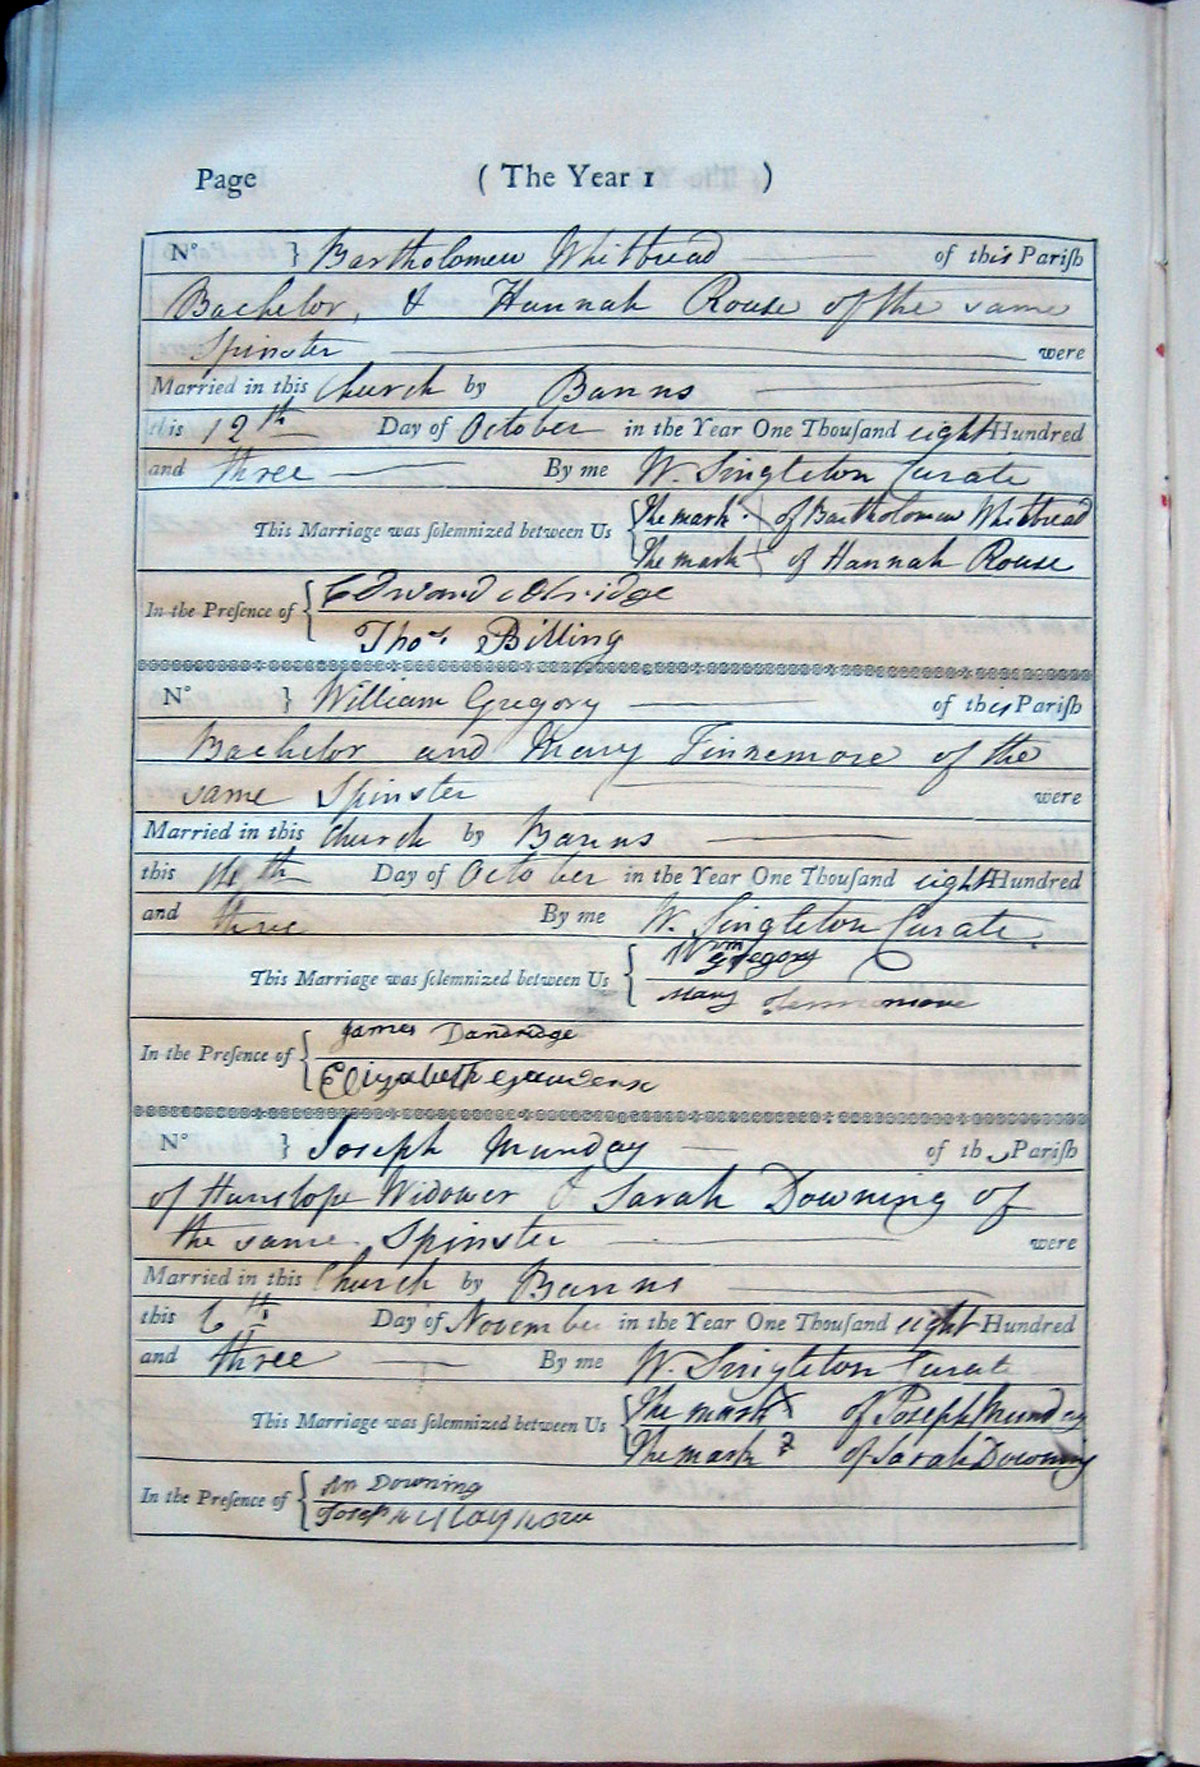 Page ( The Year 1 )
N° } Bartholomew Whitbread of this Pariſh
Bachelor, & Hannah Rouse of the same
Spinster were
Married in this Church by Banns
this 12th Day of October in the Year One Thouſand eight Hundred
and three By me W. Singleton Curate
This Marriage was ſolemnized between Us { The mark X of Bartholomew Whitbread
The mark + of Hannah Rouse
In the Preſence of { Edward
Thos. Billing
N° } William Gregory of this Pariſh
Bachelor and Mary Finnemore of the
same Spinster were
Married in this Church by Banns
this th Day of October in the Year One Thouſand eight Hundred
and three By me W. Singleton Curate.
This Marriage was ſolemnized between Us { Wm Gregory
Mary
In the Preſence of { James Dandridge
Elizabeth
N° } Joseph Munday of th Pariſh
of Hanslope Widower & Sarah Downing of
the same Spinster were
Married in this Church by Banns
this 6th Day of November in the Year One Thouſand eight Hundred
and three By me W. Singleton Curate
This Marriage was ſolemnized between Us { The mark X of Joseph Munday
The mark of Sarah Downing
In the Preſence of { Downing
Joseph